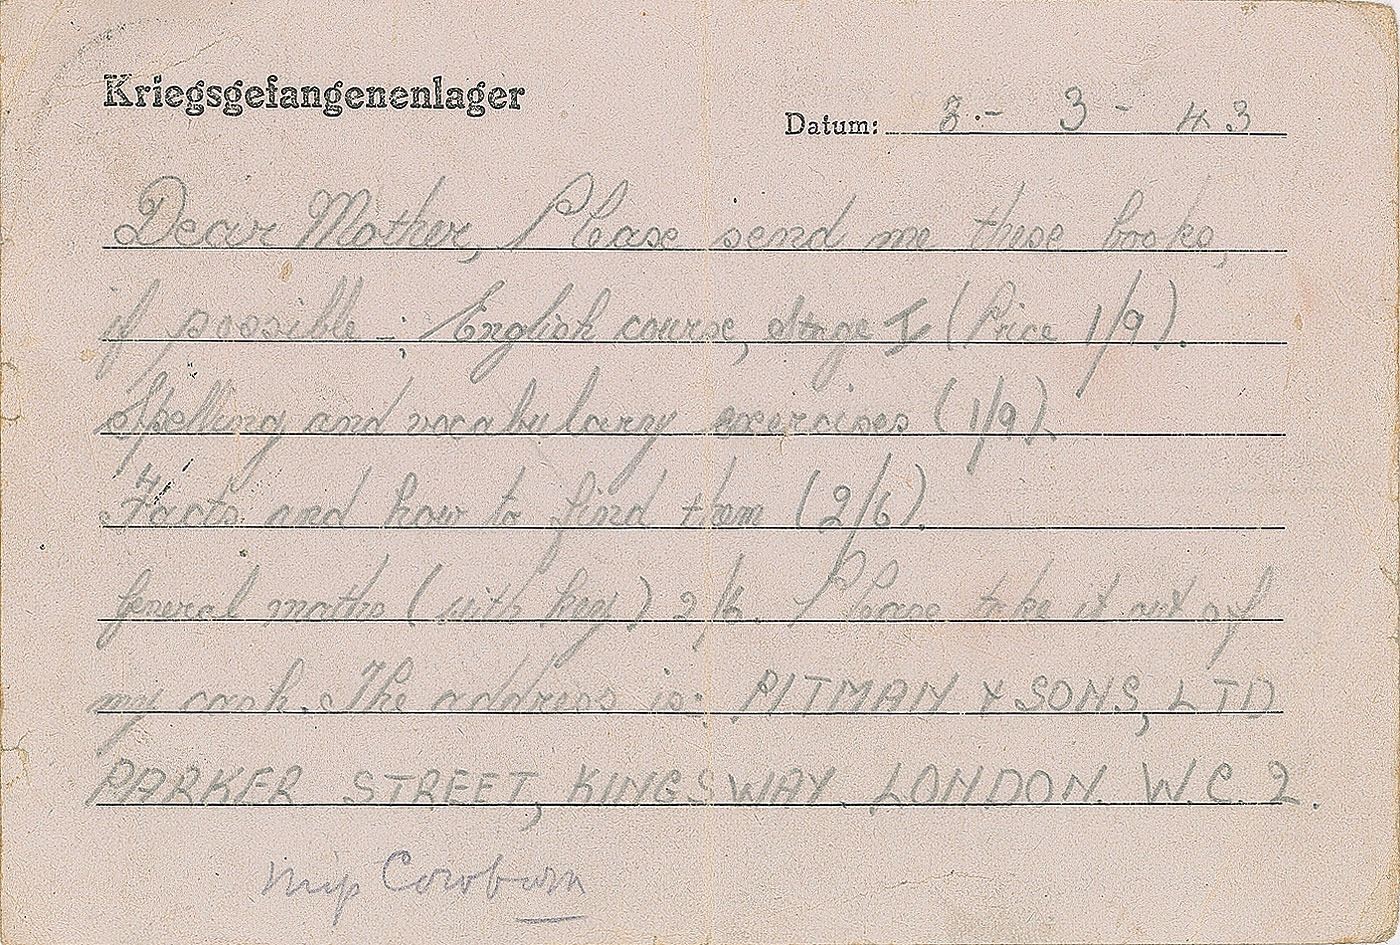 Kriegsgefangenenlager
Datum: 3 - 43
Dear Mother, Please send me these books,
if possible -; English course, stage I (Price 1/9).
Spelling and vocabulary exercises (1/9).
Facts and how to find them (2/6).
General maths (with key) 2/6. Please take it out of
my cash. The address is: PITMAN & SONS, LTD
PARKER STREET, KINGSWAY LONDON. W.C. 2.
Cowburn